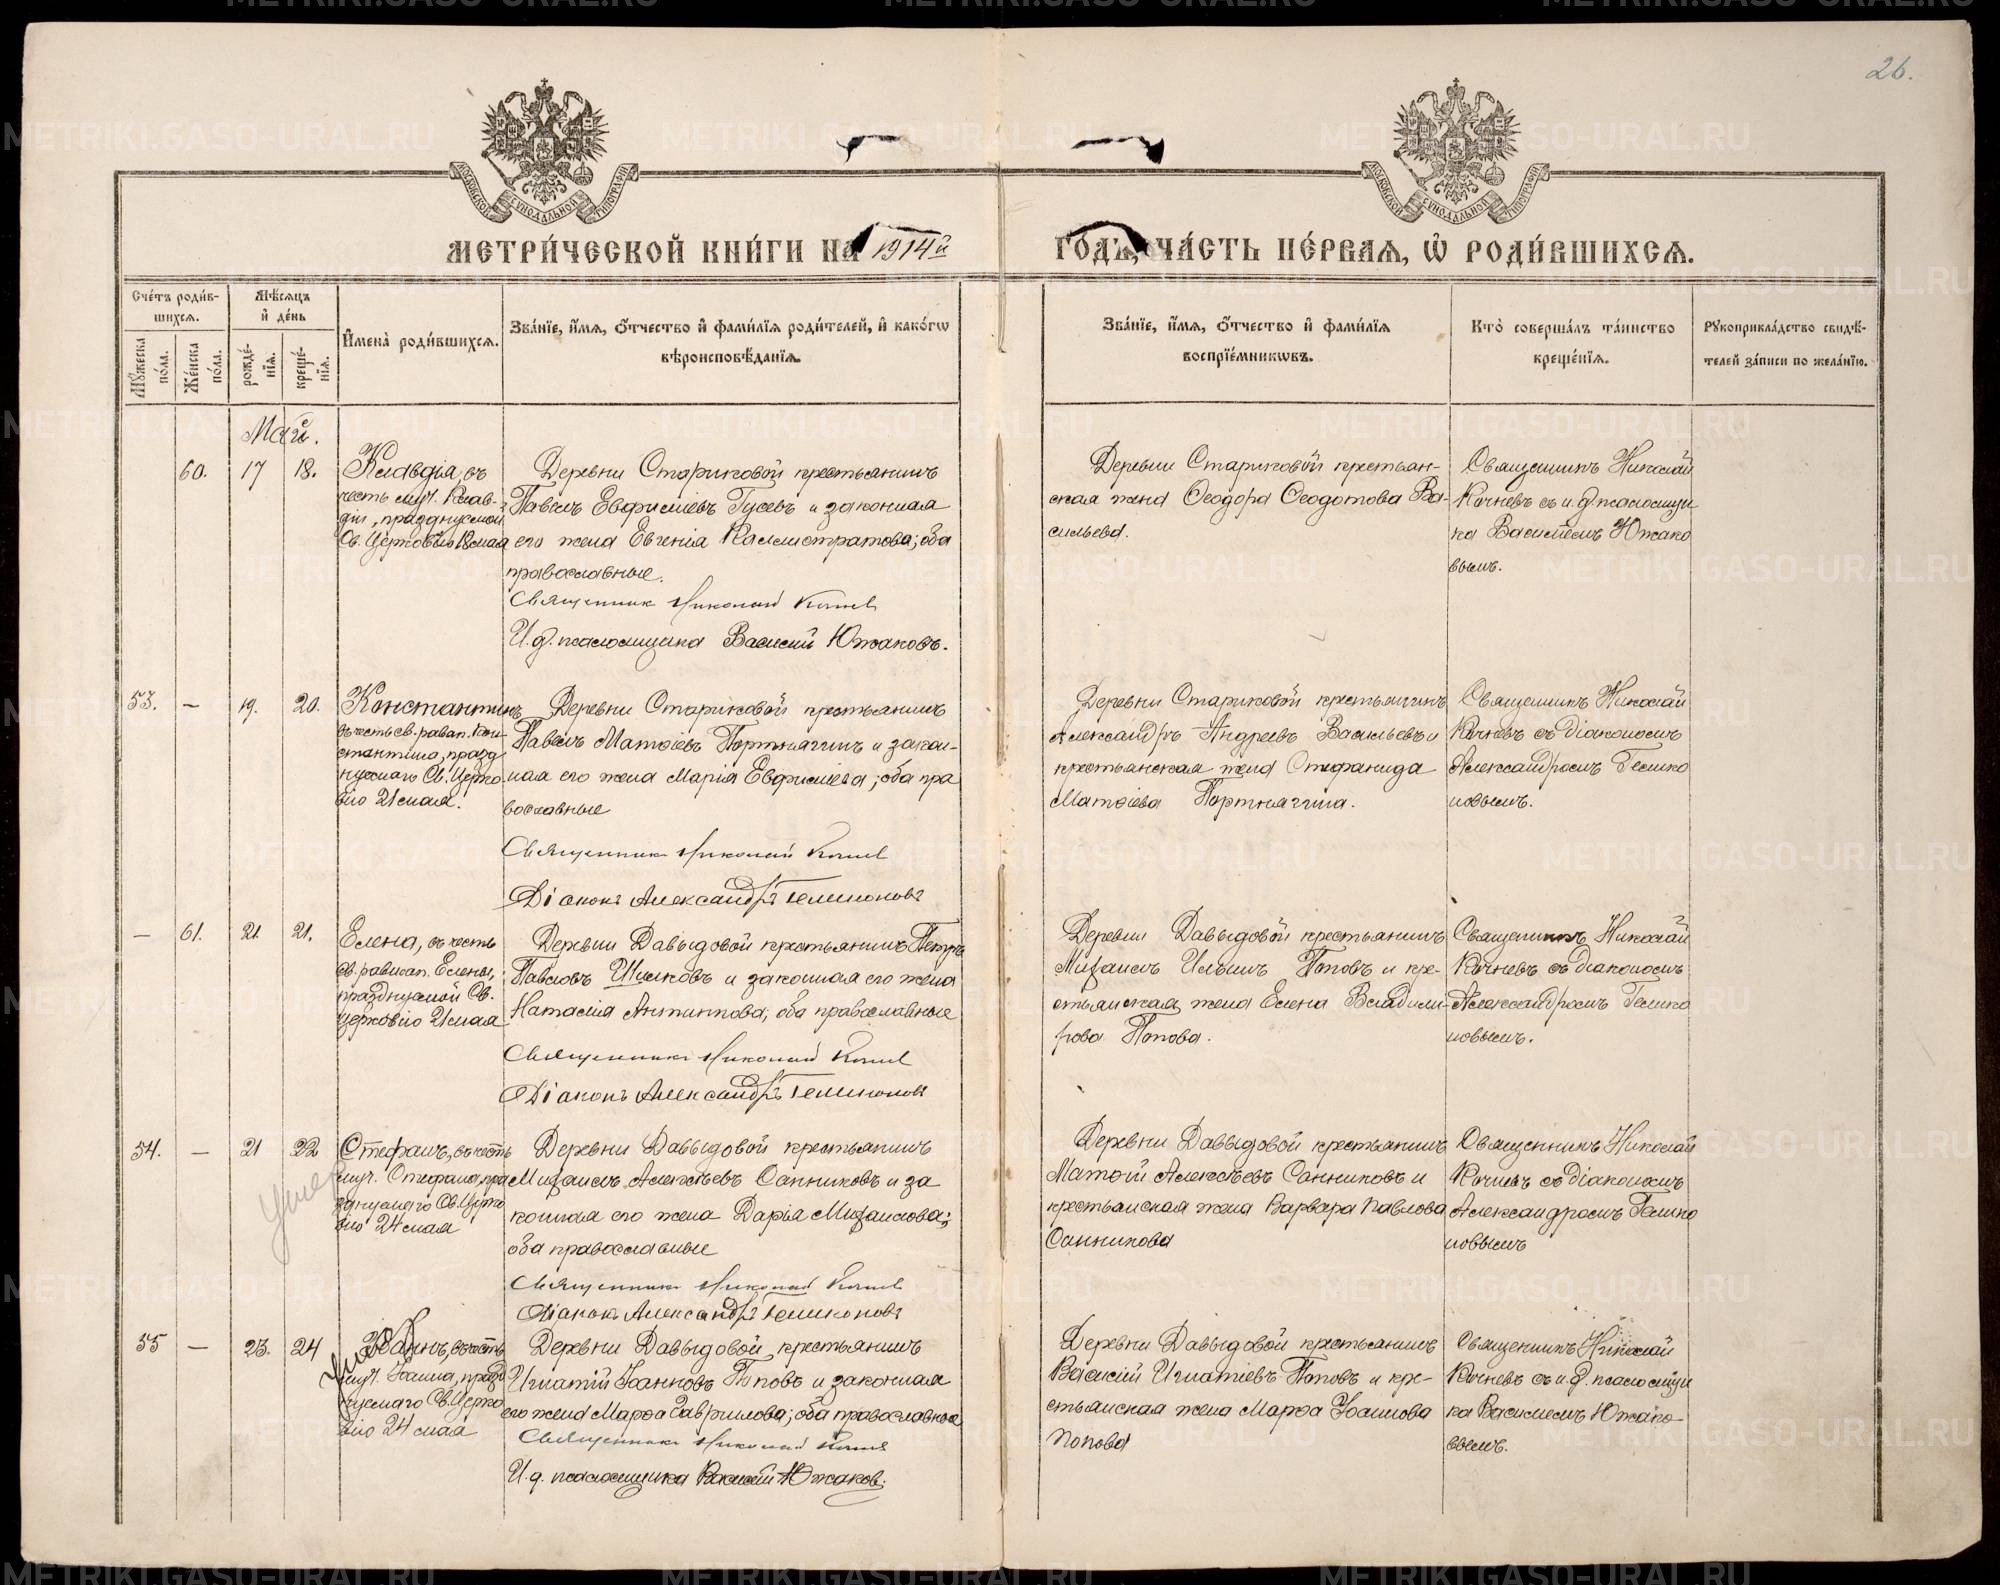 26.
МОСКОВСКОЙ СУНОДАЛЬНОЙ ТИПОГРАФІИ
МОСКОВСКОЙ СУНОДАЛЬНОЙ ТИПОГРАФІИ
МЕТРИ́ЧЕСКОЙ КНИ́ГИ НА 1914й ГО́ДЪ, ЧА́СТЬ ПЕ́РВАЯ, Ѡ РОДИ́ВШИХСЯ.
Сче́тъ роди́в-
шихся.
Мѣ́сяцъ
и҆ де́нь
И҆мена̀ роди́вшихся.
Зва́нїе, и҆́мя, ѻ҆́тчество и҆ фами́лїя роди́телей, и҆ како́гѡ
вѣроисповѣ́данїя.
Зва́нїе, и҆́мя, ѻ҆́тчество и҆ фами́лїя
воспрїе́мникѡвъ.
Кто̀ соверша́лъ та́инство
креще́нїя.
Рꙋкоприкла́дство свидѣ́-
телей за́писи по жела́нїю.
Мꙋ́жеска
по́ла.
Же́нска
по́ла.
рожде́-
нїя.
креще́-
нїя.
Май.
60. 17 18.
Клавдія, въ
честь муч. Клав-
діи, празднуемой
Св. Церковію 18 мая
Деревни Стариковой крестьянинъ
Павелъ Евфиміевъ Гусевъ и законная
его жена Евгенія Каллистратова; оба
православные.
Священник Николай Кочнев
И. д. псаломщика Василій Южаковъ.
Деревни Стариковой крестьян-
ская жена Ѳеодора Ѳеодотова Ва-
сильева.
Священникъ Николай
Кочневъ съ и. д. псаломщи
ка Василіемъ Южако
вымъ.
53. — 19. 20.
Константинъ
въ честь св. равап. Кон-
стантина, празд
нуемаго Св. Церко
вію 21 мая.
Деревни Стариковой крестьянинъ
Павелъ Матѳіевъ Портнягинъ и закон-
ная его жена Марія Евфиміева; оба пра
вославные
Священник Николай Кочнев
Діаконъ Александръ Геликоновъ
Деревни Стариковой крестьянинъ
Александръ Андреевъ Васильевъ и
крестьянская жена Стефанида
Матѳіева Портнягина.
Священникъ Николай
Кочневъ съ діакономъ
Александромъ Гелико
новымъ.
— 61. 21. 21.
Елена, въ честь
св. равноап. Елены,
празднуемой Св.
Церковію 21 мая
Деревни Давыдовой крестьянинъ Петръ
Павловъ Шилковъ и законная его жена
Наталія Антипова; оба православные
Священник Николай Кочнев
Діаконъ Александръ Геликоновъ
Деревни Давыдовой крестьянинъ
Михаилъ Ильинъ Поповъ и кре-
стьянская жена Елена Владими-
рова Попова.
Священникъ Николай
Кочневъ съ діакономъ
Александромъ Гелико
новымъ.
54. — 21 22
Умер
Стефанъ, въ честь
муч. Стефана, пра
зднуемаго Св. Церко
вію 24 мая
Деревни Давыдовой крестьянинъ
Михаилъ Алексѣевъ Санниковъ и за
конная его жена Дарія Михаилова;
оба православные
Священник Николай Кочнев
Діаконъ Александръ Геликоновъ
Деревни Давыдовой крестьянинъ
Матѳій Алексѣевъ Санниковъ и
крестьянская жена Варвара Павлова
Санникова
Священникъ Николай
Кочневъ съ діакономъ
Александромъ Гелико
новымъ
55 — 23. 24
Іоаннъ, въ честь
муч. Іоанна, празд
нуемаго Св. Церко
вію 24 мая
Деревни Давыдовой крестьянинъ
Игнатій Іоанновъ Поповъ и законная
его жена Марѳа Гаврилова; оба православные
Священник Николай Кочнев
И. д. псаломщика Василій Южаков.
Деревни Давыдовой крестьянинъ
Василій Игнатіевъ Поповъ и кре-
стьянская жена Марѳа Іоаннова
Попова
Священникъ Николай
Кочневъ съ и. д. псаломщи
ка Василіемъ Южако-
вымъ.